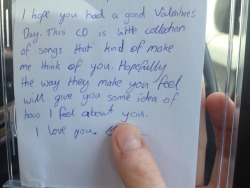 I hope you had a good Valentines
Day. This CD is little collection
of songs that kind of make
me think of you. Hopefully
the way they make you feel
will give you some idea of
how I feel about you.
I love you.